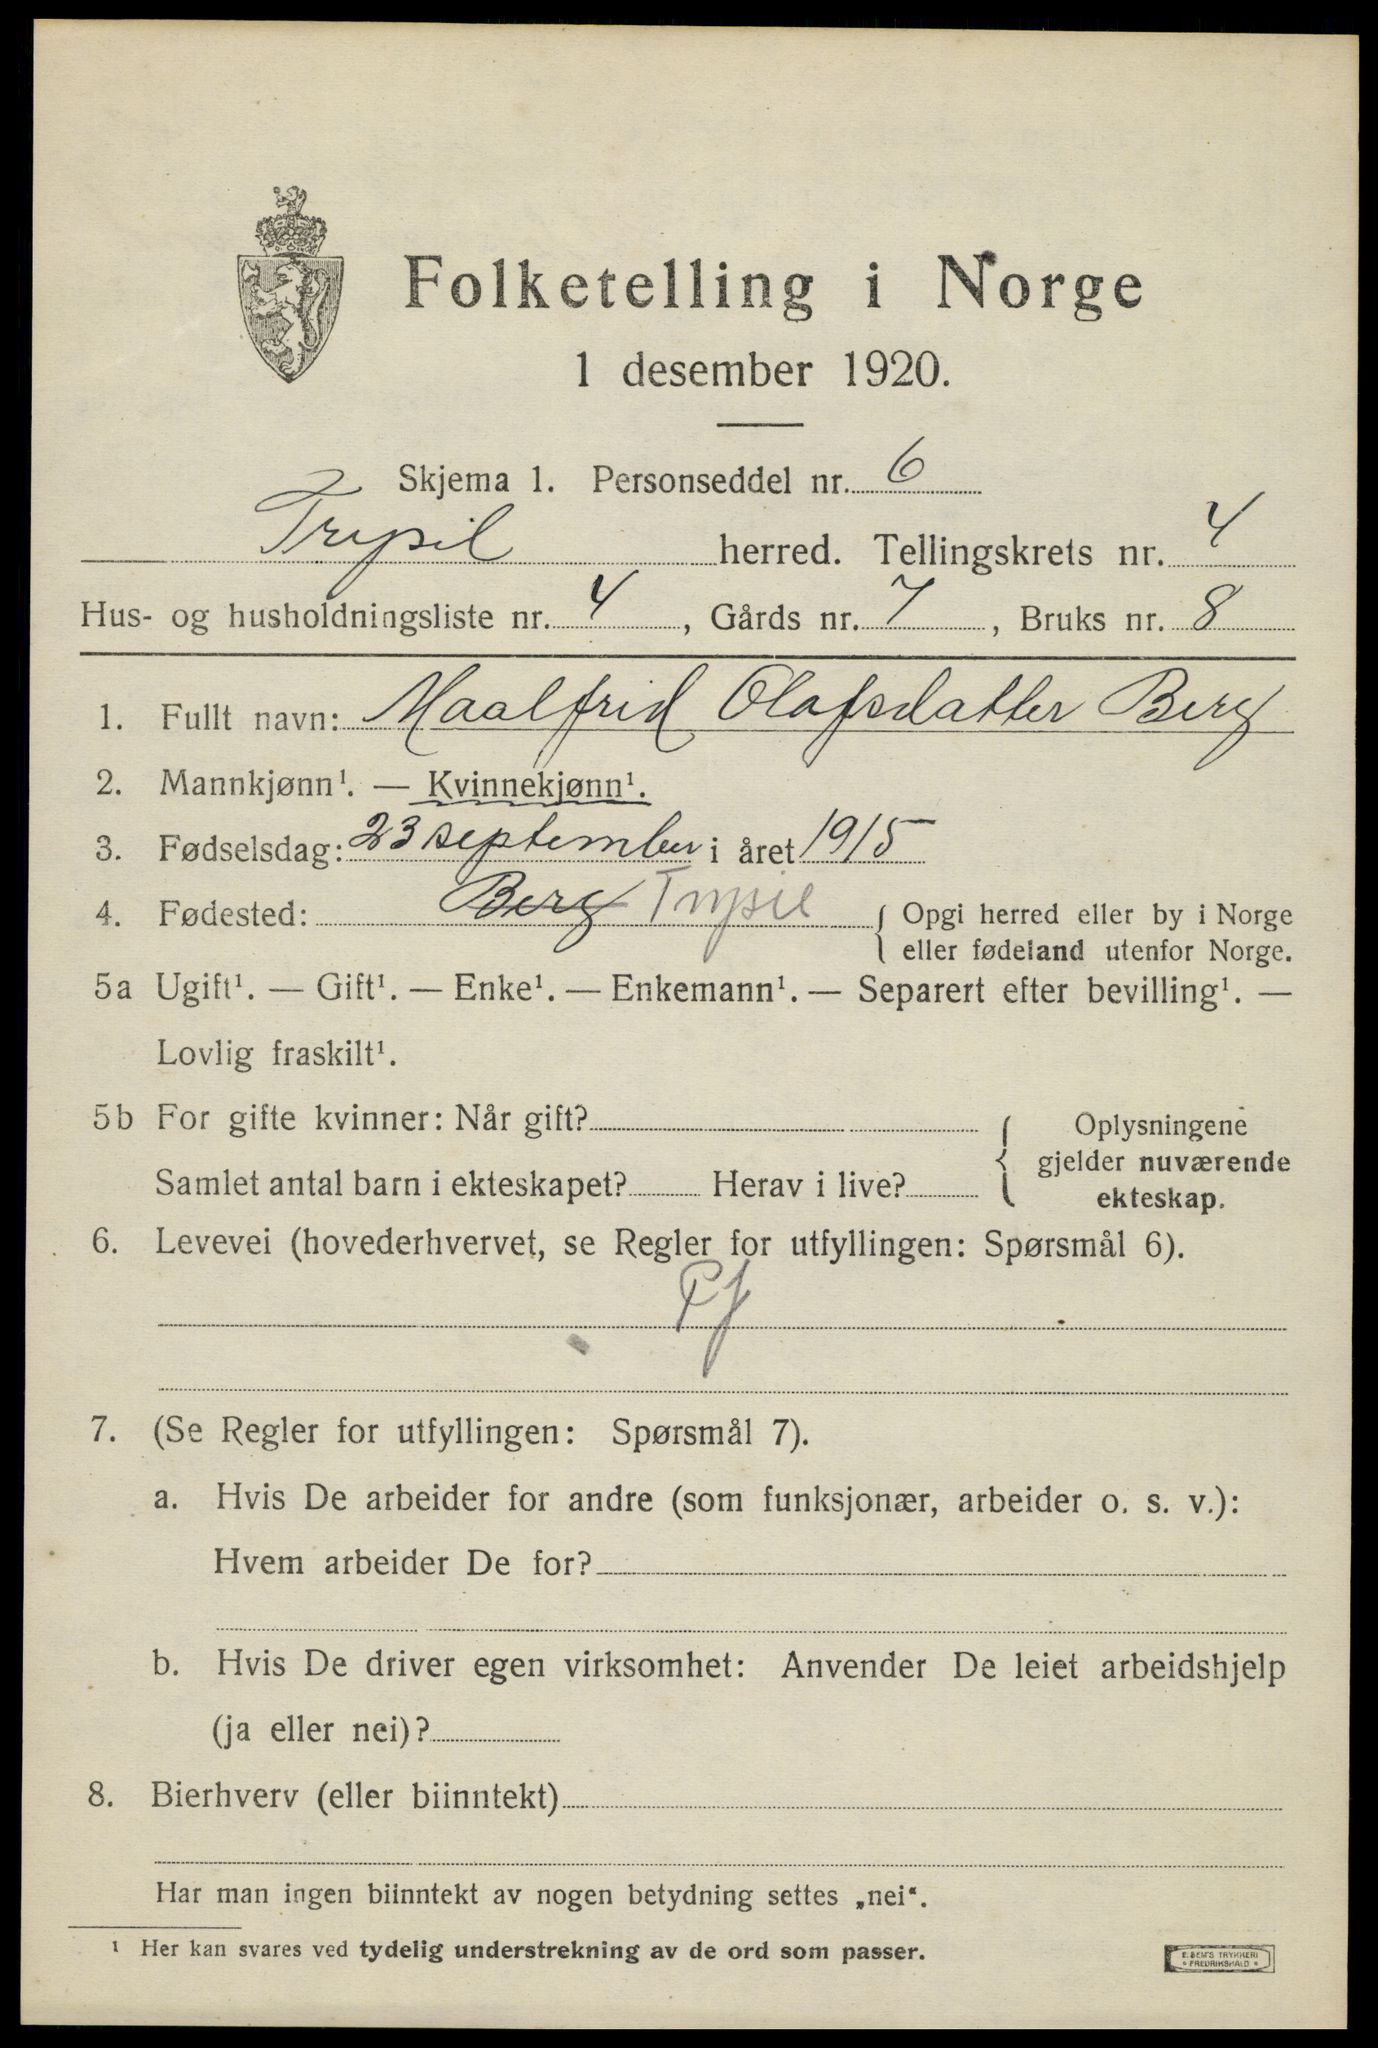 Folketelling i Norge
1 desember 1920.
Skjema 1. Personseddel nr. 6
Trysil herred. Tellingskrets nr. 4
Hus- og husholdningsliste nr. 4, Gårds nr. 7, Bruks nr. 8
1. Fullt navn: Maalfrid Olafsdatter Berg
2. Mannkjønn¹. — Kvinnekjønn¹.
3. Fødselsdag: 23 september i året 1915
4. Fødested: Berg Trysil { Opgi herred eller by i Norge
eller fødeland utenfor Norge.
5a Ugift¹. — Gift¹. — Enke¹. — Enkemann¹. — Separert efter bevilling¹. —
Lovlig fraskilt¹.
5b For gifte kvinner: Når gift? { Oplysningene
gjelder nuværende
Samlet antal barn i ekteskapet? Herav i live? ekteskap.
6. Levevei (hovederhvervet, se Regler for utfyllingen: Spørsmål 6).
Pf
7. (Se Regler for utfyllingen: Spørsmål 7).
a. Hvis De arbeider for andre (som funksjonær, arbeider o. s. v.):
Hvem arbeider De for?
b. Hvis De driver egen virksomhet: Anvender De leiet arbeidshjelp
(ja eller nei)?
8. Bierhverv (eller biinntekt)
Har man ingen biinntekt av nogen betydning settes „nei“.
¹ Her kan svares ved tydelig understrekning av de ord som passer.
E. BEM'S TRYKKERI
FREDRIKSHALD